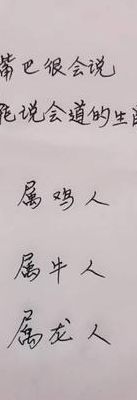 嘴巴很会说
能说会道的生肖
属鸡人
属牛人
属龙人